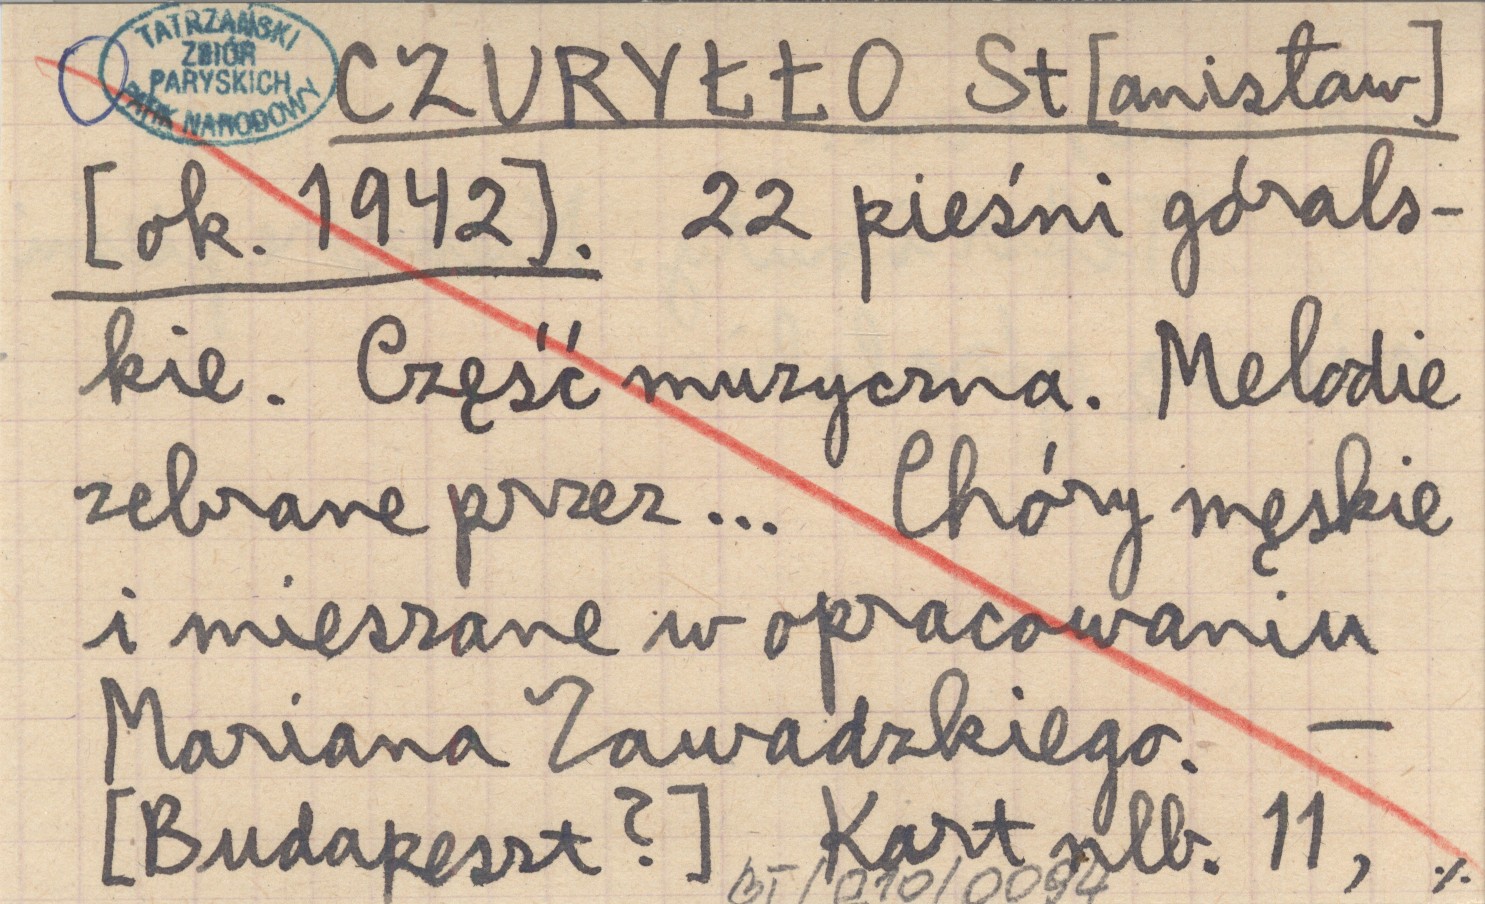 TATRZAŃSKI
ZBIÓR
PARYSKICH
PARK NARODOWY
CZURYŁŁO St[anisław]
[ok. 1942]. 22 pieśni górals-
kie. Część muzyczna. Melodie
zebrane przez... Chóry męskie
i mieszane w opracowaniu
Mariana Zawadzkiego. —
[Budapeszt?] Kart nlb. 11, ./.
BT/010/0094